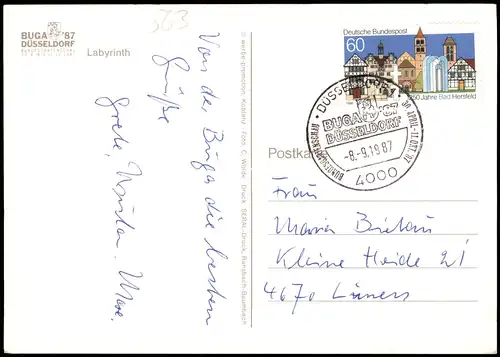 BUGA '87
DÜSSELDORF
Labyrinth
Von der Buga die besten
Grüße
© werbe-promotion, Koblenz · Foto: C. Wolde · Druck: SERAL-Druck, Ransbach-Baumbach
Deutsche Bundespost
60
1250 Jahre Bad Hersfeld
DÜSSELDORF
30. APRIL-11. OKT. '87
BUNDESGARTENSCHAU
BUGA '87
DÜSSELDORF
-8.-9.1987
4000
Postkarte
Frau
Maria
Kleine Heide 21
4670 Lünen